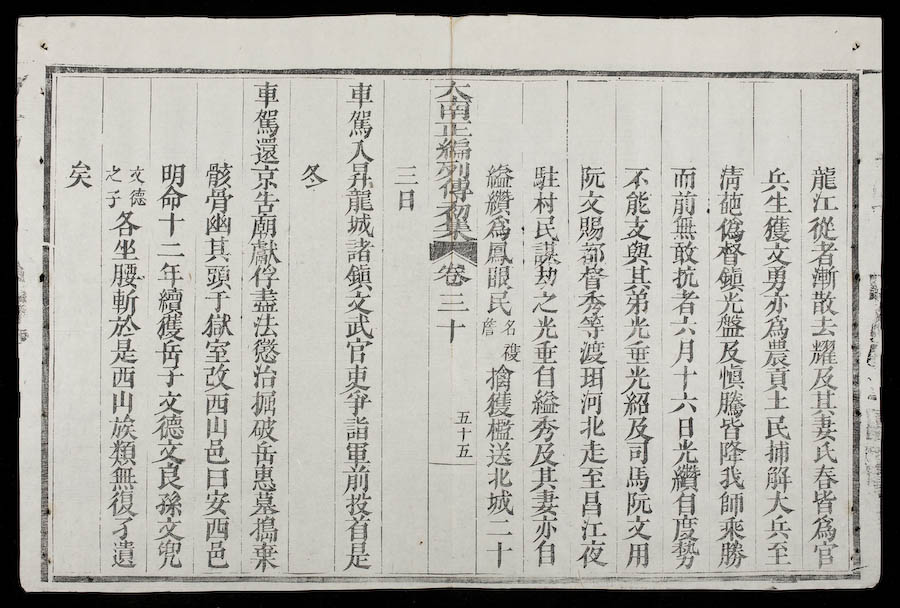 龍江從者漸散去耀及其妻氏春皆爲官
兵生獲文勇亦爲農貢土民捕解大兵至
淸葩僞督鎭光盤及愼騰皆降我師乘勝
而前無敢抗者六月十六日光纘自度勢
不能支與其弟光垂光紹及司馬阮文用
阮文賜都督秀等渡珥河北走至昌江夜
駐村民謀劫之光垂自縊秀及其妻亦自
縊纘爲鳳眼民
名複
詹
擒獲檻送北城二十
大南正編列傳初集
卷三十
五十五
三日
車駕入昇龍城諸鎭文武官吏爭詣軍前投首是
冬
車駕還京告廟獻俘盡法懲治掘破岳惠墓搗棄
骸骨幽其頭于獄室改西山邑曰安西邑
明命十二年續獲岳子文德文良孫文兜
文德
之子
各坐腰斬於是西山族類無復孑遺
矣